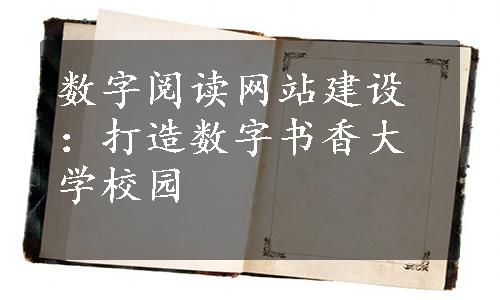 数字阅读网站建设
：打造数字书香大
学校园